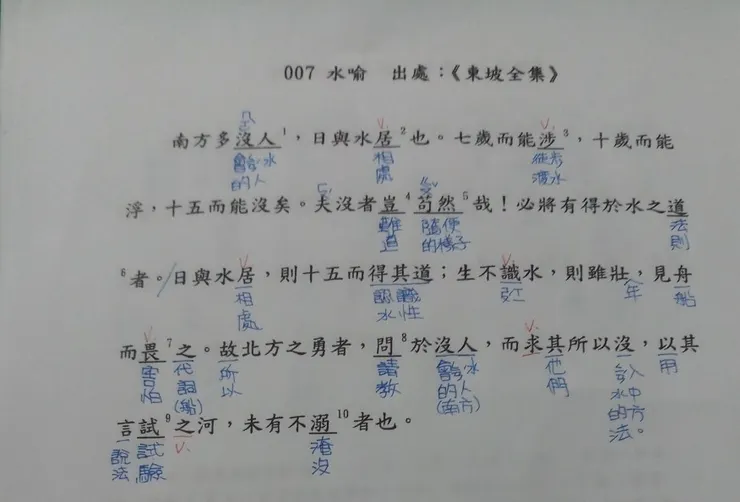 007 水喻　出處：《東坡全集》
南方多沒人1，日與水居2也。七歲而能涉3，十歲而能
會潛水的人
相處
徒步渡水
浮，十五而能沒矣。夫沒者豈4苟然5哉！必將有得於水之道
難道
隨便的樣子
法則
6者。日與水居，則十五而得其道；生不識水，則雖壯，見舟
相處
認識水性
年
船
而畏7之。故北方之勇者，問8於沒人，而求其所以沒，以其
害怕
代詞(船)
所以
請教
會潛水的人(南方)
他們
水中的方法。
用
言試9之河，未有不溺10者也。
說法
試驗
淹沒